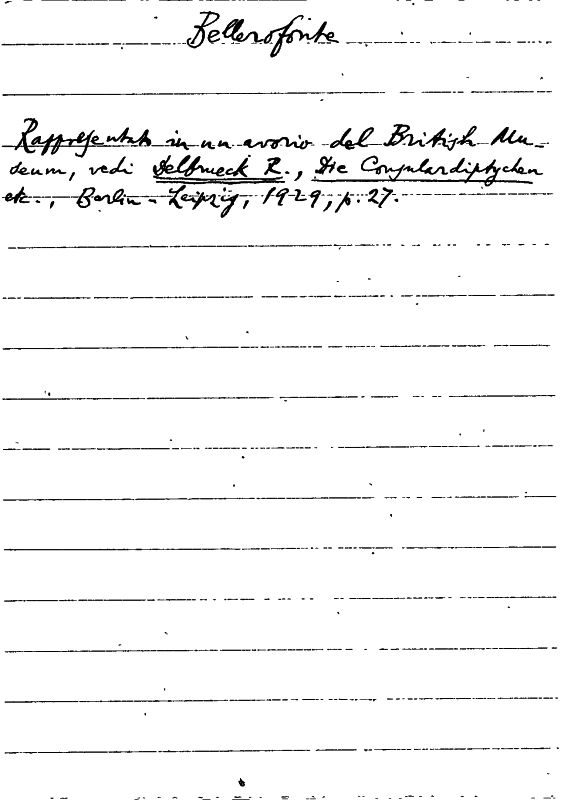 Bellerofonte
Rappresentato in un avorio del British Mu-
seum, vedi Delbrueck R., Die Consulardiptychen
etc., Berlin - Leipzig, 1929, p. 27.